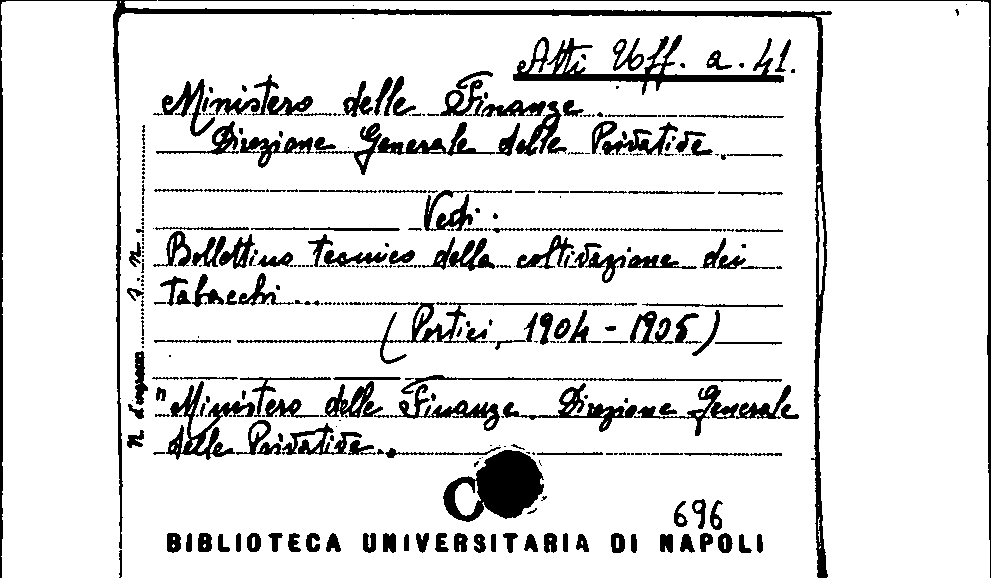 Atti Uff. a. 41.
Ministero delle Finanze.
Direzione Generale delle Privative.
Vedi:
Bollettino tecnico della coltivazione dei
Tabacchi...
(Portici, 1904-1905)
"Ministero delle Finanze. Direzione Generale
delle Privative..
N. d'ingresso s. n.
C
696
BIBLIOTECA UNIVERSITARIA DI NAPOLI